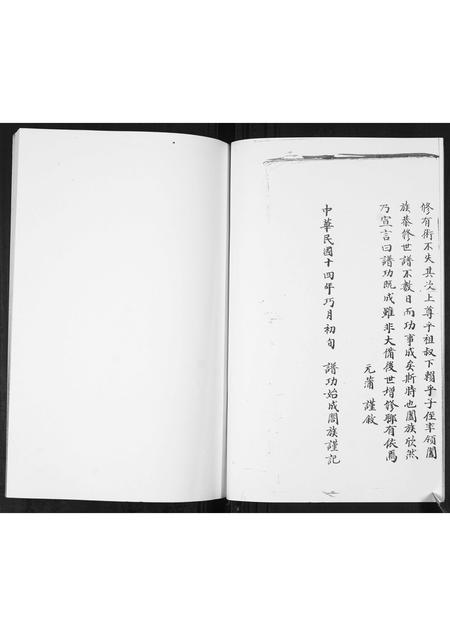 修有術不失其次上尊乎祖叔下賴乎子侄率領闔
族恭修世譜不數日而功事成矣斯時也闔族欣然
乃宣言曰譜功既成雖非大備後世增修聊有依焉
元蒲 謹敘
中華民國十四年巧月初旬 譜功始成闔族謹記